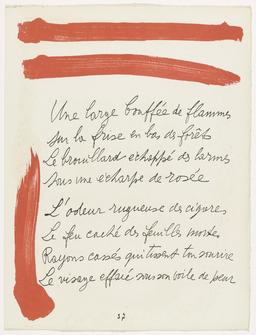 Une large bouffée de flammes
sur la frise en bas de forêts
Le brouillard échappé des larmes
sous une écharpe de rosée
L'odeur rugueuse des cigares
Le feu caché des feuilles mortes
Rayons cassés qui tissent ton sourire
Le visage effacé sous son voile de peur
27